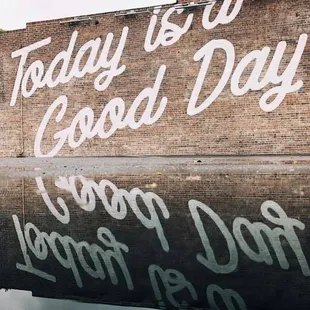 Today is a
Good Day